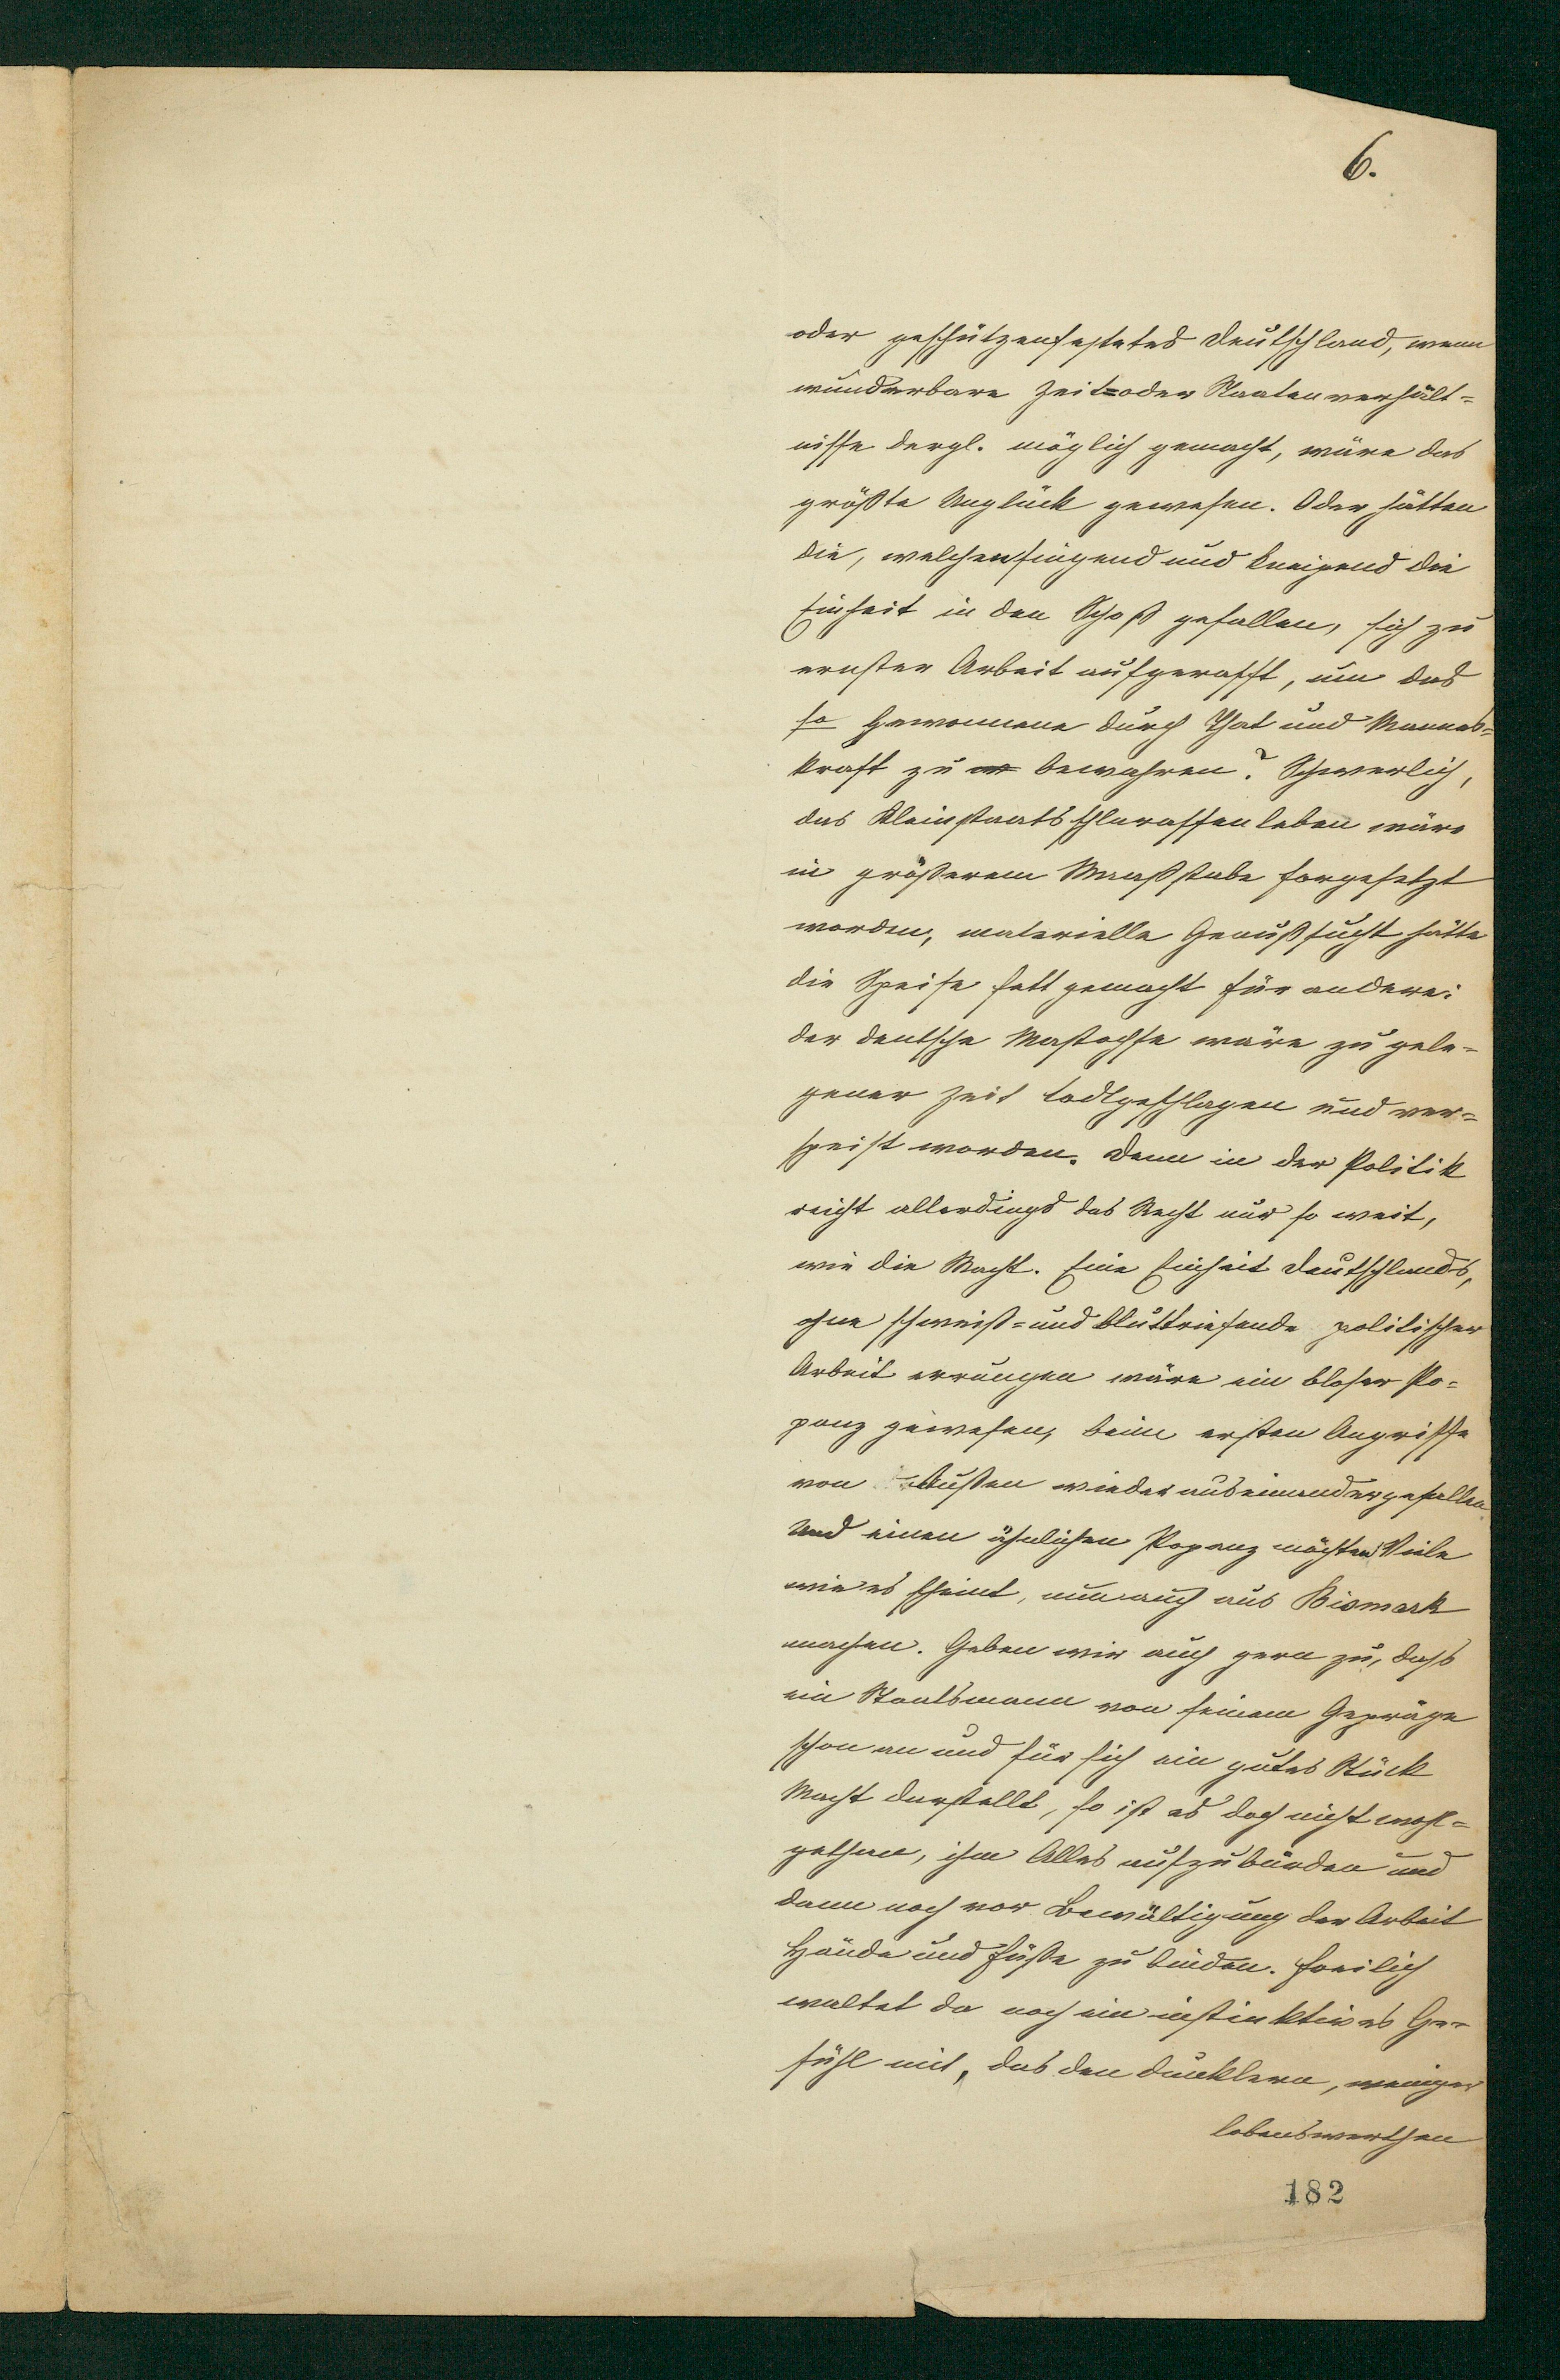 6.
oder geschützenfestetes Deutschland, wenn
wunderbare Zeit=oder Staatenverhält=
nisse dergl. möglich gemacht, wäre das
größte Unglück gewesen. Oder hätten
die, welchen singend und kneipend die
Einheit in den Schoß gefallen, sich zu
ernster Arbeit aufgerafft, um das
so Gewonnene durch That und Mannes=
kraft zu bewahren? Schwerlich,
das Kleinstaatsschlaraffenleben wäre
in größerem Maaßstabe forgesetzt
worden, materielle Genußsucht hätte
die Speise fett gemacht für andere:
der deutsche Mastochse wäre zu gele=
gener Zeit todtgeschlagen und ver=
speist worden. Denn in der Politik
reicht allerdings das Recht nur so weit,
wie die Macht. Eine Einheit Deutschlands,
ohne schweiß=und bluttriefende politischer
Arbeit errungen wäre ein bloser Po=
panz gewesen, beim ersten Angriffe
von Außen wieder auseinandergefallen
Und einen ähnlichen Popanz möchten Viele
wie es scheint, nun auch aus Bismark
machen. Geben wir auch gern zu, dass
ein Staatsmann von seinem Gepräge
schon an und für sich ein gutes Stück
Macht darstellt, so ist es doch nicht wohl=
gethan, ihm Alles aufzubürden und
dann noch vor Bewältigung der Arbeit
Hände und Füße zu binden. Freilich
waltet da noch ein instinktives Ge=
fühl mit, das den dunklern, weniger
lobenswerthen
182